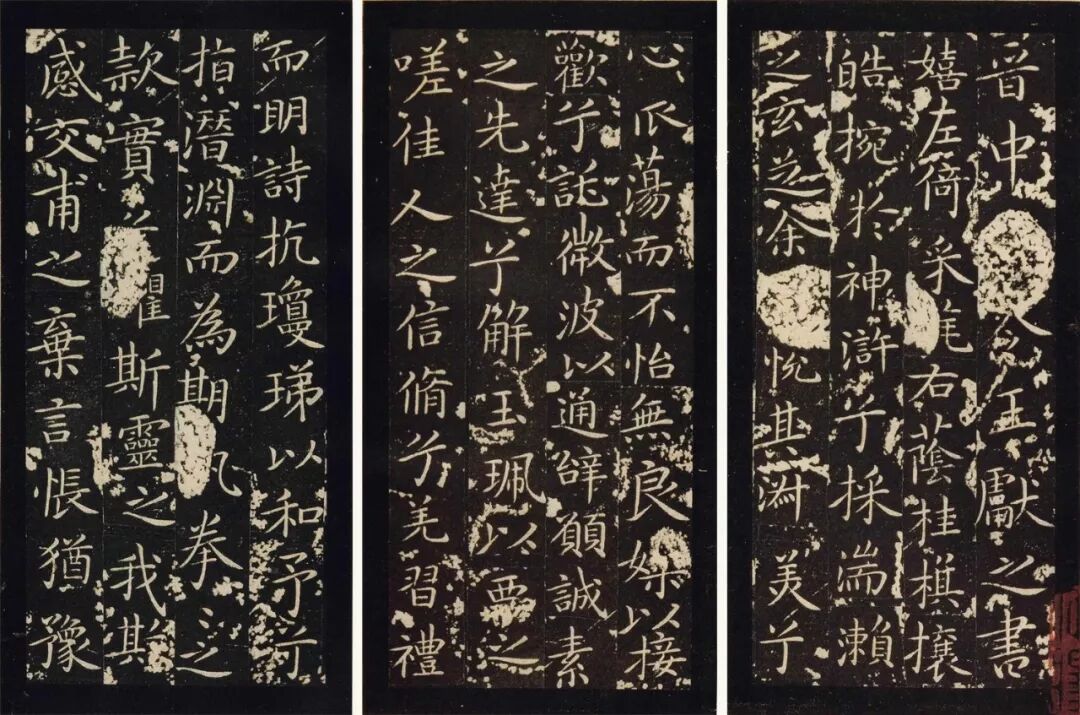 晉中令王獻之書
嬉左倚采旄右蔭桂旗攘
皓捥於神滸兮採湍瀨
之玄芝余悅其淑美兮
心蕩而不怡無良媒以接
歡兮託微波以通辭願誠素
之先達兮解玉珮以要之
嗟佳人之信脩兮羌習禮
而明詩抗瓊珶以和予兮
指潛淵而為期拳之
款實兮懼斯靈之我欺
感交甫之棄言悵猶豫